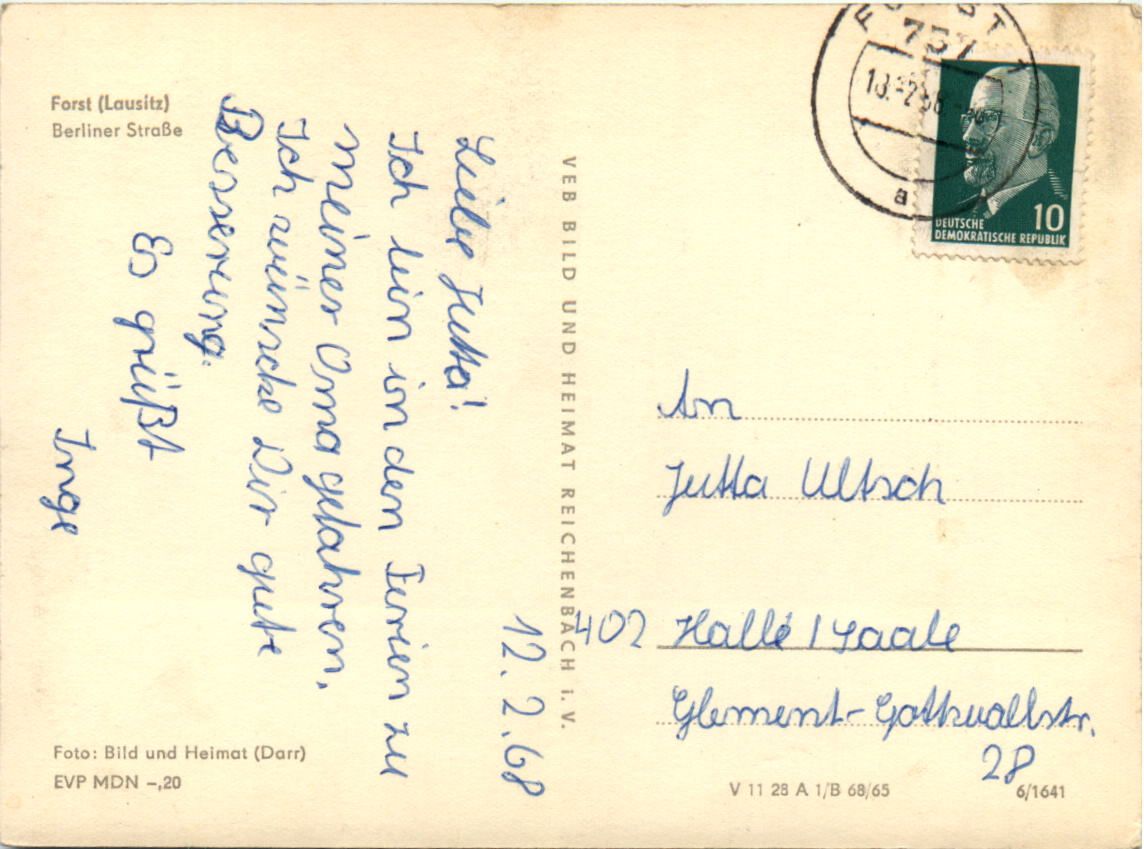 Forst (Lausitz)
Berliner Straße
12. 2. 68
Liebe Jutta!
Ich bin in den Ferien zu
meiner Oma gefahren.
Ich wünsche Dir gute
Besserung.
Es grüßt
Inge
Foto: Bild und Heimat (Darr)
EVP MDN -,20
VEB BILD UND HEIMAT REICHENBACH i. V.
FORST 1
757
DEUTSCHE
DEMOKRATISCHE REPUBLIK
10
a
An
Jutta Ultsch
402 Halle / Saale
Glement-Gottwaldstr.
28
V 11 28 A 1/B 68/65
6/1641